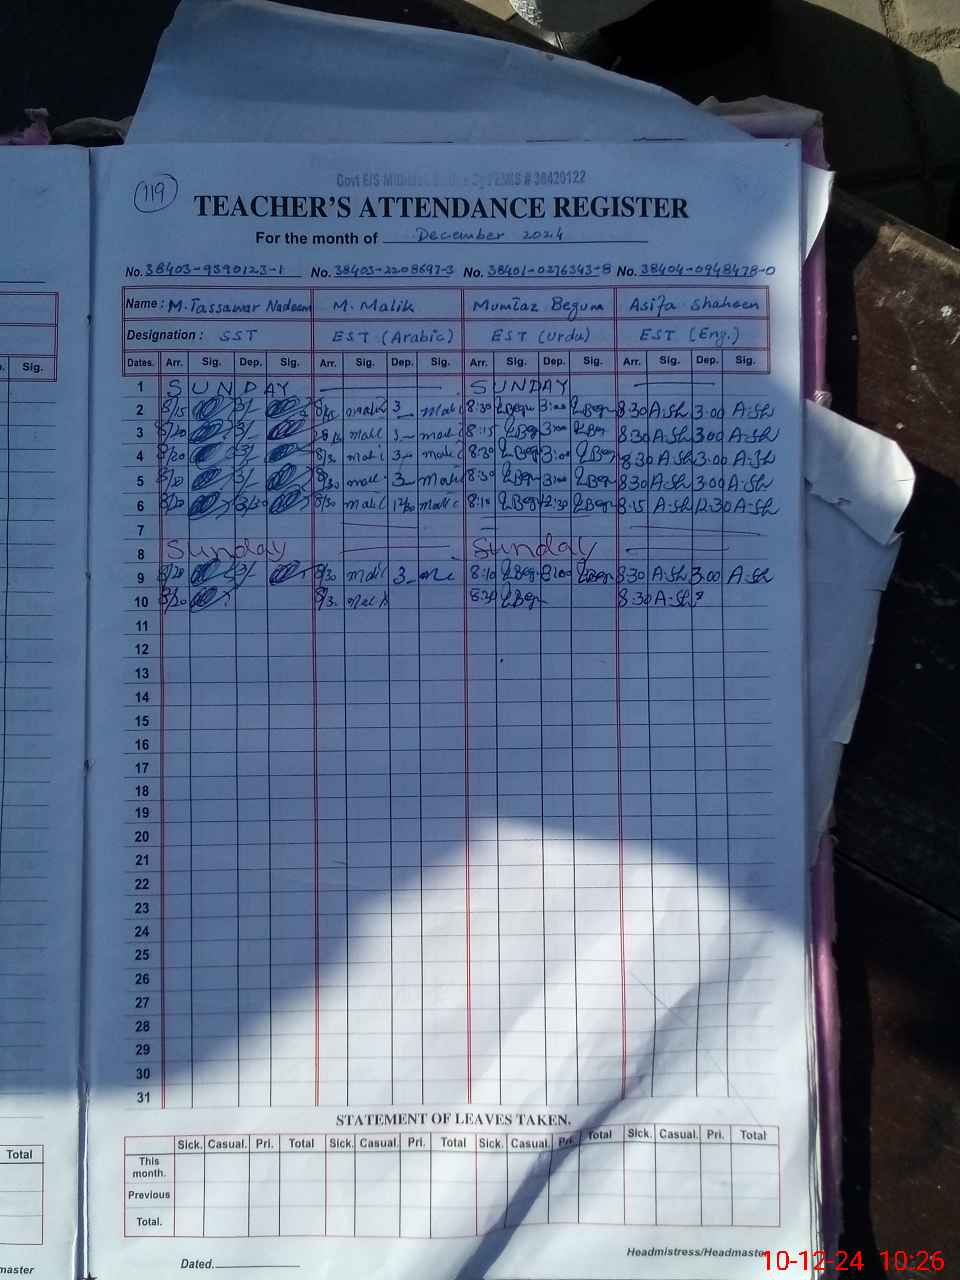 119
Govt E/S EMIS # 38420122
TEACHER'S ATTENDANCE REGISTER
For the month of December 2024
No. 38403-9390123-1 No. 38403-2208697-3 No. 38401-0276343-8 No. 38404-0948478-0
Name: M. Tassawar Nadeem M. Malik Mumtaz Begum Asifa Shaheen
Designation: SST EST (Arabic) EST (Urdu) EST (Eng.)
Sig. Dates. Arr. Sig. Dep. Sig. Arr. Sig. Dep. Sig. Arr. Sig. Dep. Sig. Arr. Sig. Dep. Sig.
1 SUNDAY SUNDAY
2 8/15 3/- 8/15 malik 3- 8:30 Begu 3:00 Begu 8:30 A-Sh 3:00 A-Sh
3 8/20 3/- 3- 8:15 Beg 3:00 Beg 8:30 A-Sh 3:00 A-Sh
4 8/20 3/- 8/30 3- 8:30 Beg 3:00 Beg 8:30 A-Sh 3:00 A-Sh
5 3/- 8/30 3- 8:30 Beg 3:00 Beg 8:30 A-Sh 3:00 A-Sh
6 8/20 8/30 12/30 8:10 Beg 12:30 Begu 8:15 A-Sh 12:30 A-Sh
7
8 Sunday Sunday
9 8/20 3/- 8/30 3- 8:10 Begu 3:00 Begu 8:30 A-Sh 3:00 A-Sh
10 8/20 8/30 8:30 Beg 8:30 A-Sh
11
12
13
14
15
16
17
18
19
20
21
22
23
24
25
26
27
28
29
30
31
STATEMENT OF LEAVES TAKEN.
Total Sick. Casual. Pri. Total Sick. Casual. Pri. Total Sick. Casual. Pri. Total Sick. Casual. Pri. Total
This month.
Previous
Total.
Dated. Headmistress/Headmaster
master
10-12-24 10:26